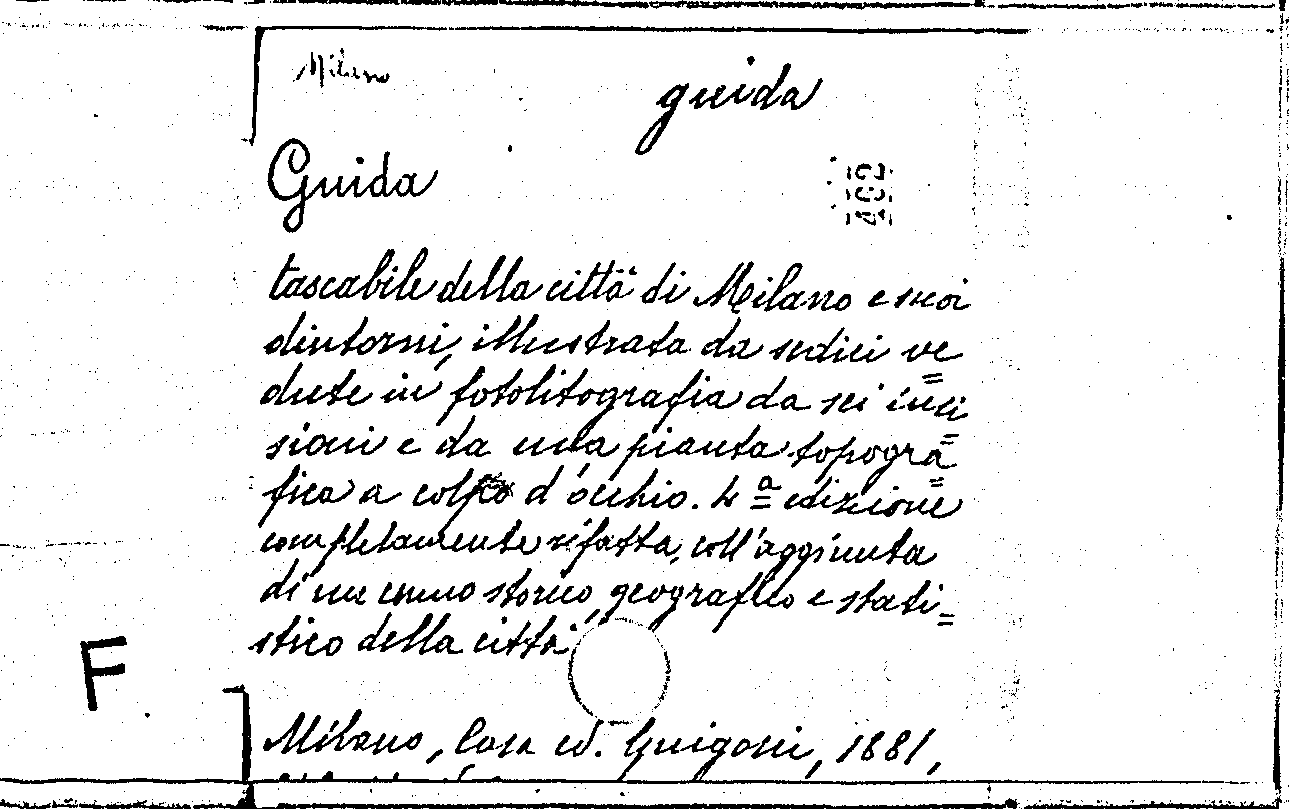 Milano
guida
Guida
tascabile della città di Milano e suoi
dintorni, illustrata da sedici ve=
dute in fotolitografia da sei inci=
sioni e da una pianta topogra=
fica a colpo d'occhio. 4ª edizione
completamente rifatta, coll'aggiunta
di un cenno storico, geografico e stati=
stico della città
F
Milano, Casa ed. Guigoni, 1881,